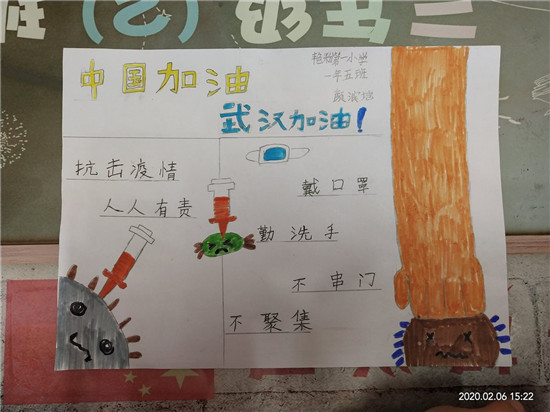 中国加油
武汉加油！
第一小学
一年五班
抗击疫情
人人有责
戴口罩
勤洗手
不串门
不聚集
2020.02.06 15:22